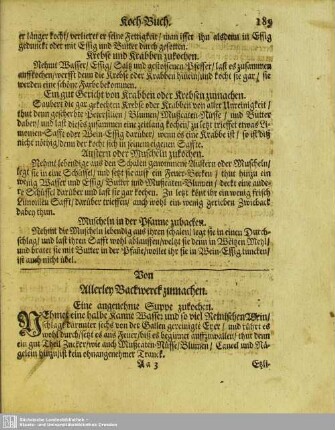 Koch-Buch. 189
er länger kocht/ verlieret er seine Fettigkeit/ man isset ihn alsdenn in Essig
gedunckt oder mit Essig und Butter durch gesotten.
Krebse und Krabben zukochen.
Nehmt Wasser/ Essig/ Saltz und gestossenen Pfeffer/ last es zusammen
auffkochen/ werfft denn die Krebs oder Krabben hinein/ und kocht sie gar/ sie
werden eine schöne Farbe bekommen.
Ein gut Gericht von Krabben oder Krebsen zumachen.
Saubert die gar gekochten Krebse oder Krabben von aller Unreinigkeit/
thut denn gescherbte Petersilien/ Blumen/ Muscaten-Nüsse/ und Butter
daben/ und last dieses zusammen eine zeitlang kochen/ zu letzt trieffet etwas Li-
monien-Safft oder Wein-Essig darüber/ wenn es eine Krabbe ist/ so ist diß
nicht nöthig/ denn der kocht sich in seinem eigenen Saffte.
Austern oder Muscheln zukochen.
Nehmt lebendige aus den Schalen genommene Austern oder Muscheln/
legt sie in eine Schüssel/ und setzt sie auff ein Feuer-Becken/ thut hinzu ein
wenig Wasser und Essig/ Butter und Muscaten-Blumen/ deckt eine ande-
re Schüssel darüber und last sie gar kochen. Zu letzt könt ihr ein wenig frisch
Limonien Safft/ darüber trieffen/ auch wohl ein wenig gerieben Zwieback
dabey thun.
Muscheln in der Pfanne zubacken.
Nehmt die Muscheln lebendig aus ihren schalen/ legt sie in einen Durch-
schlag/ und last ihren Safft wohl ablauffen/ weltzt sie denn in Weitzen Mehl/
und bratet sie mit Butter in der Pfanne/ wollet ihr sie in Wein-Essig tuncken/
ist auch nicht übel.
Von
Allerley Backwerck zumachen.
Eine angenehme Suppe zukochen.
NEhmet eine halbe Kanne Wasser und so viel Reinischen Wein/
schlagt darunter sechs von der Gallen gereinigte Eyer/ und rührt es
wohl durch/ setzt es ans Feuer/ biß es beginnet auffzuwallen/ thut denn
ein gut Theil Zucker/ wie auch Muscaten-Nüsse/ Blumen/ Canel und Nä-
gelein hinzu/ ist kein ohnangenehmer Tranck.
Aa 3 Etli-